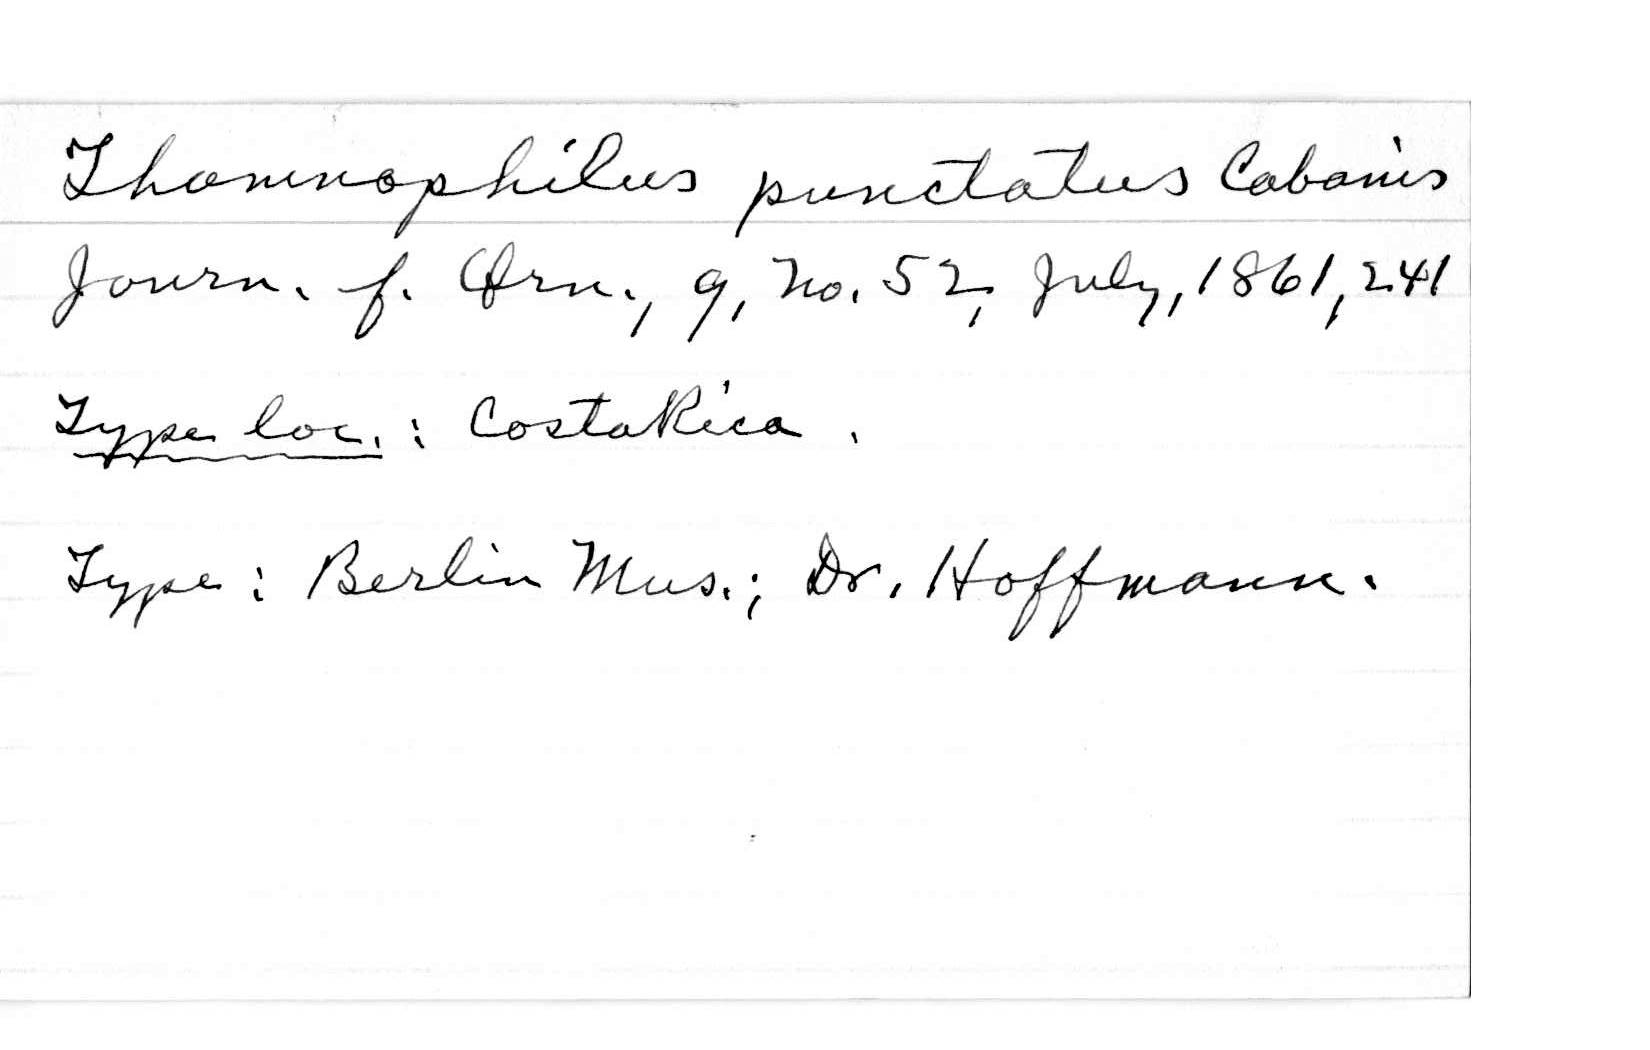 Thamnophilus punctatus Cabanis
Journ. f. Orn., 9, No. 52, July, 1861, 241
Type loc. : Costa Rica .
Type : Berlin Mus. ; Dr. Hoffmann .